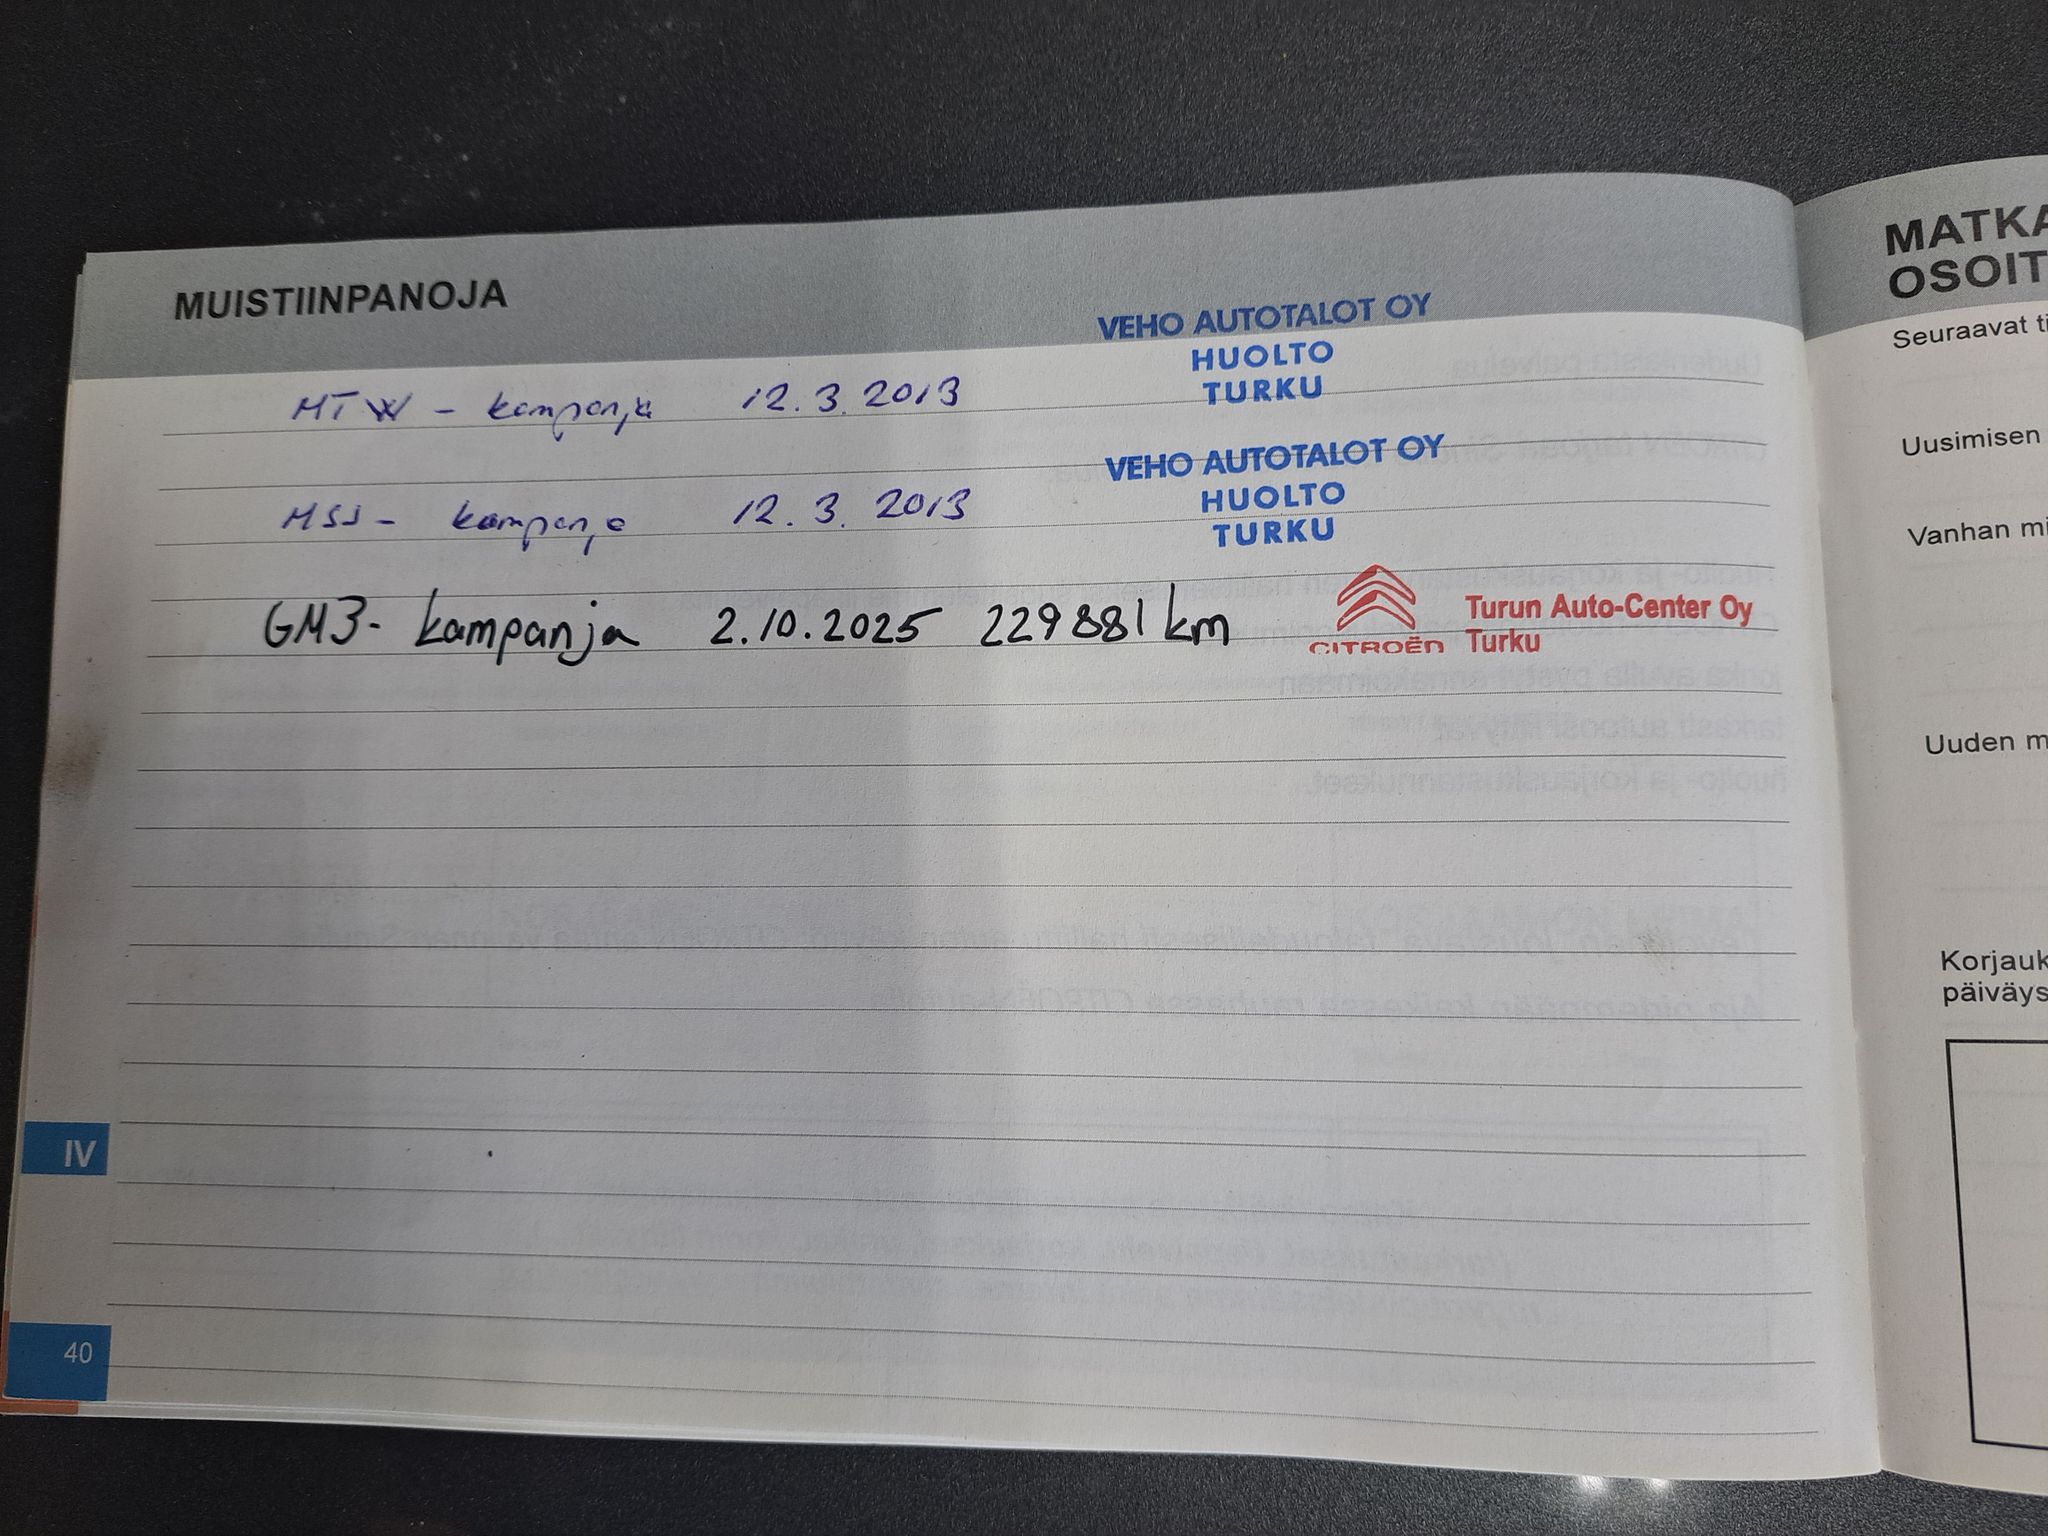 MUISTIINPANOJA
VEHO AUTOTALOT OY
HUOLTO
TURKU
MTW - kampanja 12.3.2013
VEHO AUTOTALOT OY
HUOLTO
TURKU
MSJ - kampanja 12.3.2013
GM3- kampanja 2.10.2025 229881 km
CITROËN
Turun Auto-Center Oy
Turku
IV
40
MATKA
OSOIT
Seuraavat ti
Uusimisen
Vanhan mi
Uuden m
Korjauk
päiväys